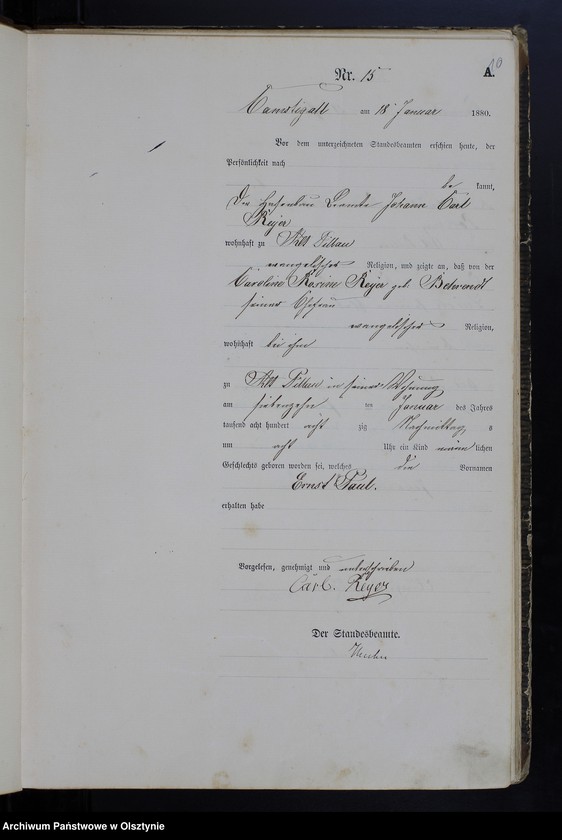 Nr. 15
A.
Camstigall am 18 Januar 1880.
Vor dem unterzeichneten Standesbeamten erschien heute, der
Persönlichkeit nach
be kannt,
Der Hafenbau Beamte Johann Carl
Reyer
wohnhaft zu Alt Pillau
evangelischer Religion, und zeigte an, daß von der
Caroline Rosine Reyer geb. Behrendt
seiner Ehefrau
evangelischer Religion,
wohnhaft bei ihm
zu Alt Pillau in seiner Wohnung
am siebenzehn ten Januar des Jahres
tausend acht hundert acht zig Nachmittag s
um acht Uhr ein Kind männ lichen
Geschlechts geboren worden sei, welches die Vornamen
Ernst Paul.
erhalten habe
Vorgelesen, genehmigt und unterschrieben
Carl. Reyer
Der Standesbeamte.
Archiwum Państwowe w Olsztynie